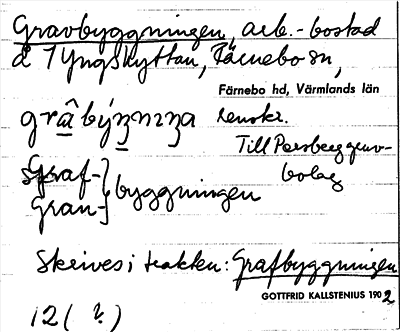 Gravbyggningen, arb.-bostad
å Tyngshyttan, Färnebo sn,
Färnebo hd, Värmlands län
renskr.
Till Persberg gruv-
bolag
Graf-
Gran-
byggningen
Skrives i trakten: Grafbyggningen
GOTTFRID KALLSTENIUS 1902
12 (?)